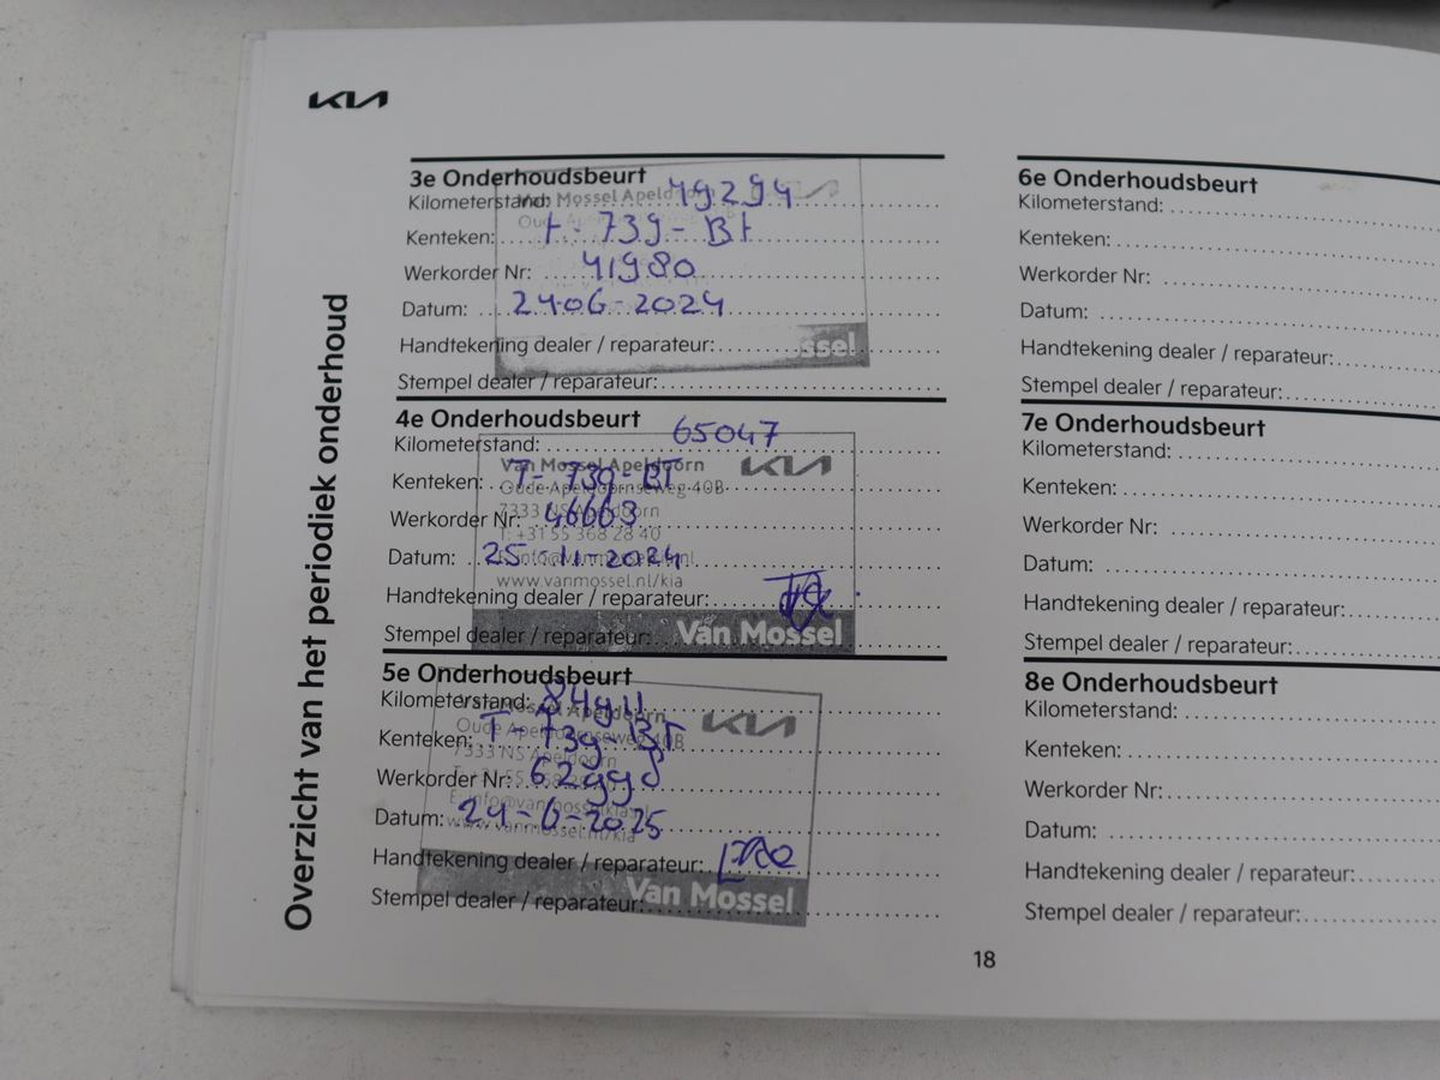 KIA
Overzicht van het periodiek onderhoud
3e Onderhoudsbeurt
Kilometerstand: 49294
Kenteken: T-739-BT
Werkorder Nr: 41980
Datum: 24-06-2024
Handtekening dealer / reparateur:
Stempel dealer / reparateur:
4e Onderhoudsbeurt
Kilometerstand: 65047
Van Mossel Apeldoorn KIA
Kenteken: T-739-BT
Oude Apeldoornseweg 40B
Werkorder Nr: 46663
7333 NS Apeldoorn
T: +31 55 368 28 40
Datum: 25-11-2024
www.vanmossel.nl/kia
Handtekening dealer / reparateur:
Stempel dealer / reparateur: Van Mossel
5e Onderhoudsbeurt
Kilometerstand: 84911
Apeldoorn KIA
Kenteken: T-739-BT
Oude Apeldoornseweg 40B
7333 NS Apeldoorn
Werkorder Nr: 62998
Datum: 24-6-2025
www.vanmossel.nl/kia
Handtekening dealer / reparateur:
Stempel dealer / reparateur: Van Mossel
6e Onderhoudsbeurt
Kilometerstand:
Kenteken:
Werkorder Nr:
Datum:
Handtekening dealer / reparateur:
Stempel dealer / reparateur:
7e Onderhoudsbeurt
Kilometerstand:
Kenteken:
Werkorder Nr:
Datum:
Handtekening dealer / reparateur:
Stempel dealer / reparateur:
8e Onderhoudsbeurt
Kilometerstand:
Kenteken:
Werkorder Nr:
Datum:
Handtekening dealer / reparateur:
Stempel dealer / reparateur:
18